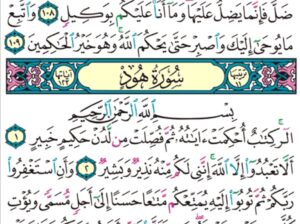 ضَلَّ فَإِنَّمَا يَضِلُّ عَلَيْهَا وَمَا أَنَا۠ عَلَيْكُم بِوَكِيلٍ ١٠٨ وَٱتَّبِعْ
مَا يُوحَىٰٓ إِلَيْكَ وَٱصْبِرْ حَتَّىٰ يَحْكُمَ ٱللَّهُ وَهُوَ خَيْرُ ٱلْحَٰكِمِينَ ١٠٩
سُورَةُ هُودٍ
بِسْمِ ٱللَّهِ ٱلرَّحْمَٰنِ ٱلرَّحِيمِ
الٓر كِتَٰبٌ أُحْكِمَتْ ءَايَٰتُهُۥ ثُمَّ فُصِّلَتْ مِن لَّدُنْ حَكِيمٍ خَبِيرٍ ١
أَلَّا تَعْبُدُوٓا۟ إِلَّا ٱللَّهَ إِنَّنِى لَكُم مِّنْهُ نَذِيرٌ وَبَشِيرٌ ٢ وَأَنِ ٱسْتَغْفِرُوا۟
رَبَّكُمْ ثُمَّ تُوبُوٓا۟ إِلَيْهِ يُمَتِّعْكُم مَّتَٰعًا حَسَنًا إِلَىٰٓ أَجَلٍ مُّسَمًّى وَيُؤْتِ